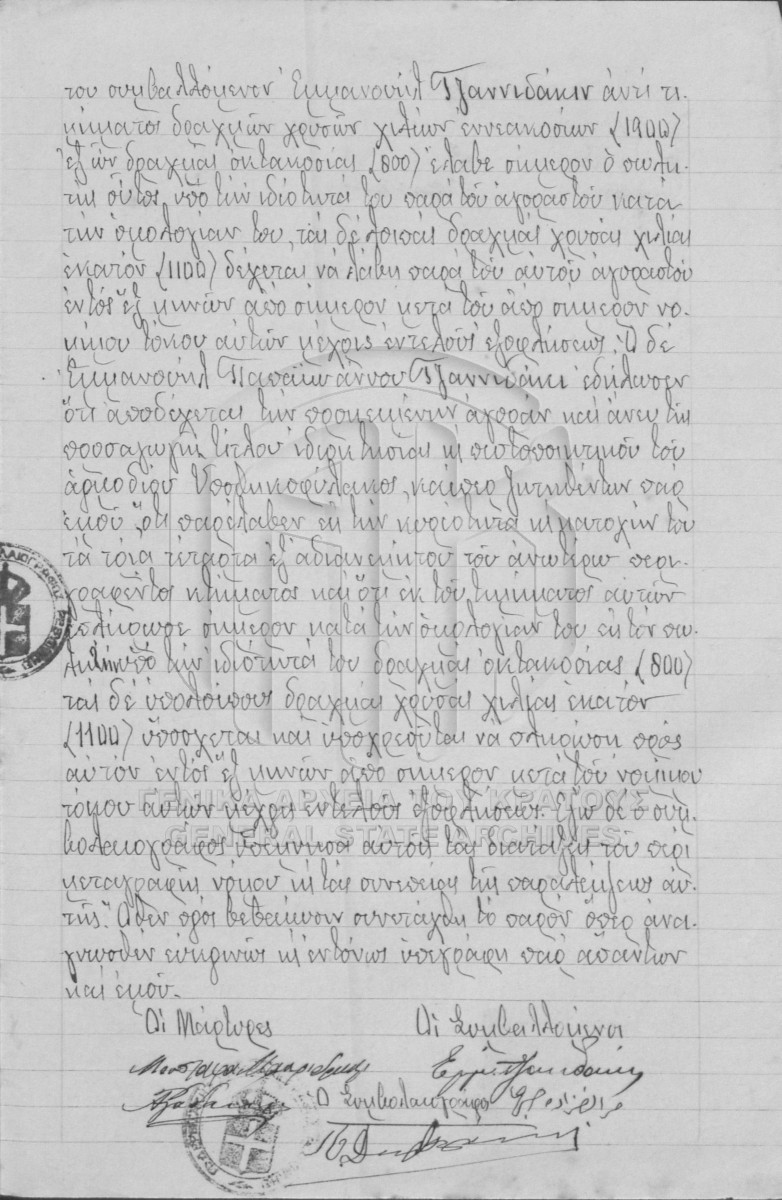 του συμβαλλόμενον Ἐμμανουὴλ Τζαννιδάκιν ἀντὶ τι-
μήματος δραχμῶν χρυσῶν χιλίων ἐννεακοσίων (1900)
ἐξ ὧν δραχμὰς ὀκτακοσίας (800) ἔλαβε σήμερον ὁ πωλη-
τὴς οὗτος ὑπὸ τὴν ἰδιότητά του παρὰ τοῦ ἀγοραστοῦ κατὰ
τὴν ὁμολογίαν του, τὰς δὲ λοιπὰς δραχμὰς χρυσᾶς χιλίας
ἑκατὸν (1100) δέχεται νὰ λάβῃ παρὰ τοῦ αὐτοῦ ἀγοραστοῦ
ἐντὸς ἓξ μηνῶν ἀπὸ σήμερον μετὰ τοῦ ἀπὸ σήμερον νο-
μίμου τόκου αὐτῶν μέχρις ἐντελοῦς ἐξοφλήσεως. Ὁ δὲ
Ἐμμανουὴλ Παπαϊωάννου Τζαννιδάκι ἐδήλωσεν
ὅτι ἀποδέχεται τὴν προκειμένην ἀγορὰν καὶ ἄνευ τῆς
προσαγωγῆς τίτλου ἰδιοκτησίας κ πιστοποιητικοῦ τοῦ
ἁρμοδίου Ὑποθηκοφύλακος, καίπερ ζητηθέντων παρ'
ἐμοῦ, ὅτι παρέλαβεν εἰς τὴν κυριότητα κ κατοχήν του
τὰ τρία τέταρτα ἐξ ἀδιανεμήτου τοῦ ἀνωτέρω περι-
γραφέντος κτήματος καὶ ὅτι ἐκ τοῦ τιμήματος αὐτῶν
ἐπλήρωσε σήμερον κατὰ τὴν ὁμολογίαν του εἰς τὸν πω-
λητὴν ὑπὸ τὴν ἰδιότητά του δραχμὰς ὀκτακοσίας (800)
τὰς δὲ ὑπολοίπους δραχμὰς χρυσᾶς χιλίας ἑκατὸν
(1100) ὑπόσχεται καὶ ὑποχρεοῦται νὰ πληρώσῃ πρὸς
αὐτὸν ἐντὸς ἓξ μηνῶν ἀπὸ σήμερον μετὰ τοῦ νομίμου
τόκου αὐτῶν μέχρις ἐντελοῦς ἐξοφλήσεως. Ἐγὼ δὲ ὁ συμ-
βολαιογράφος ὑπέμνησα αὐτοῖς τὰς διατάξεις τοῦ περὶ
μεταγραφῆς νόμου κ τὰς συνεπείας τῆς παραλείψεως αὐ-
τῆς. Ὅθεν πρὸς βεβαίωσιν συνετάχθη τὸ παρὸν ὅπερ ἀνα-
γνωσθὲν εὐκρινῶς κ ἐντόνως ὑπεγράφη παρ' ἁπάντων
καὶ ἐμοῦ.
Οἱ Μάρτυρες Οἱ Συμβαλλόμενοι
Ὁ Συμβολαιογράφος
ΓΕΝΙΚΑ ΑΡΧΕΙΑ ΤΟΥ ΚΡΑΤΟΥΣ
GENERAL STATE ARCHIVES